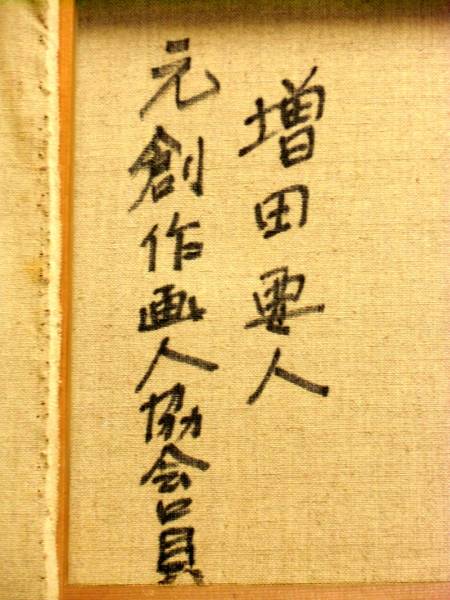 増田要人
元創作画人協会員